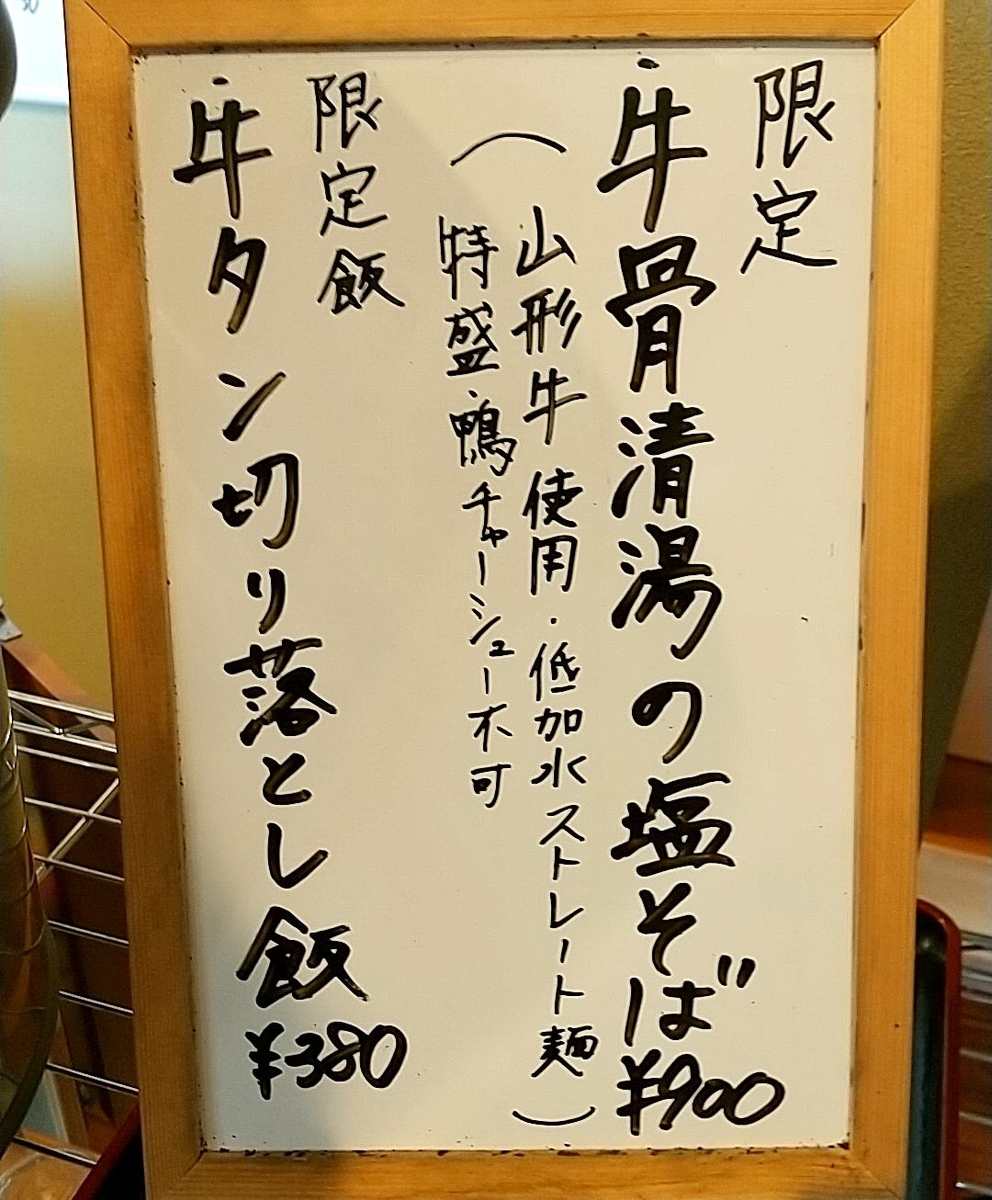 限定
牛骨清湯の塩そば ¥900
(山形牛使用・低加水ストレート麺
特盛・鴨チャーシュー不可)
限定飯
牛タン切り落とし飯 ¥380